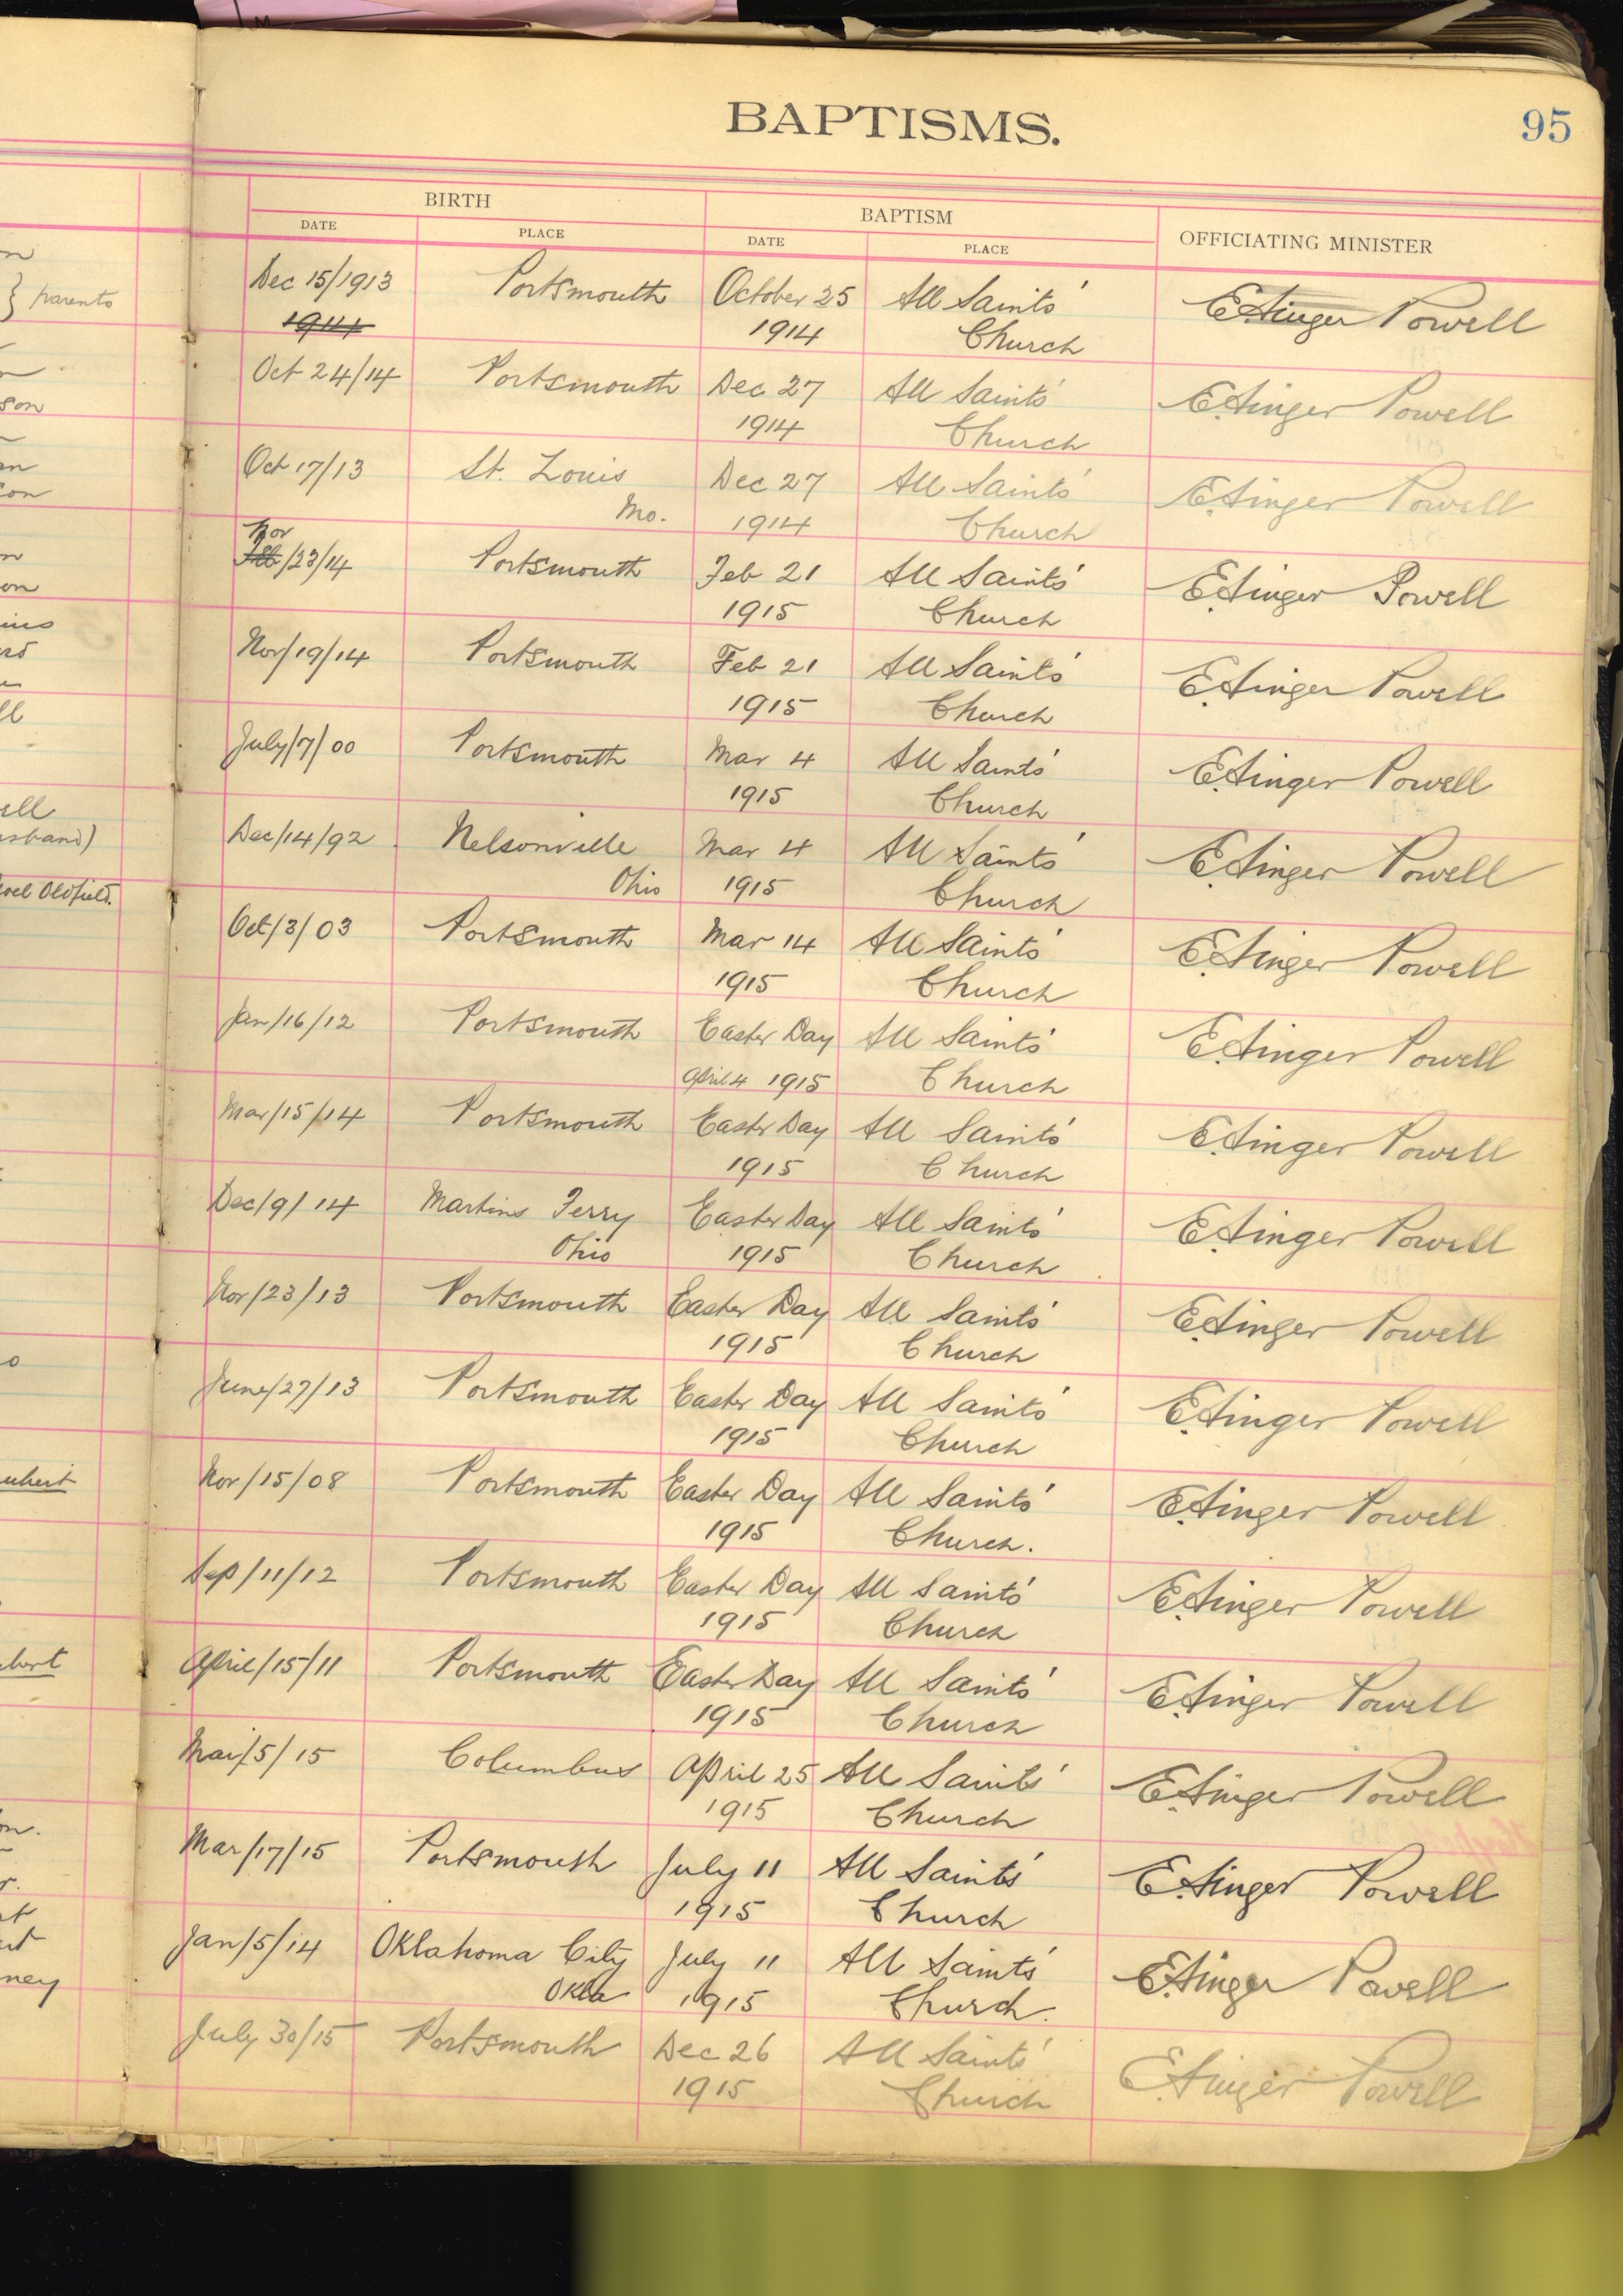 BAPTISMS.
95
BIRTH
BAPTISM
OFFICIATING MINISTER
DATE
PLACE
DATE
PLACE
} parents
Dec 15/1913 Portsmouth October 25 All Saints' E. Ainger Powell
1914 1914 Church
Oct 24/14 Portsmouth Dec 27 All Saints' E. Ainger Powell
son
1914 Church
Oct 17/13 St. Louis Dec 27 All Saints' E. Ainger Powell
Mo. 1914 Church
Nov
Feb/23/14 Portsmouth Feb 21 All Saints' E. Ainger Powell
1915 Church
Nov/19/14 Portsmouth Feb 21 All Saints' E. Ainger Powell
1915 Church
July/7/00 Portsmouth Mar 4 All Saints' E. Ainger Powell
1915 Church
Dec/14/92 Nelsonville Mar 4 All Saints' E. Ainger Powell
Ohio 1915 Church
Oldfield.
Oct/3/03 Portsmouth Mar 14 All Saints' E. Ainger Powell
1915 Church
Jan/16/12 Portsmouth Easter Day All Saints' E. Ainger Powell
April 4 1915 Church
Mar/15/14 Portsmouth Easter Day All Saints' E. Ainger Powell
1915 Church
Dec/9/14 Martins Ferry Easter Day All Saints' E. Ainger Powell
Ohio 1915 Church
Nov/23/13 Portsmouth Easter Day All Saints' E. Ainger Powell
1915 Church
June/27/13 Portsmouth Easter Day All Saints' E. Ainger Powell
1915 Church
Nov/15/08 Portsmouth Easter Day All Saints' E. Ainger Powell
1915 Church.
Sep/11/12 Portsmouth Easter Day All Saints' E. Ainger Powell
1915 Church
April/15/11 Portsmouth Easter Day All Saints' E. Ainger Powell
1915 Church
Mar/5/15 Columbus April 25 All Saints' E. Ainger Powell
1915 Church
Mar/17/15 Portsmouth July 11 All Saints' E. Ainger Powell
1915 Church
Jan/5/14 Oklahoma City July 11 All Saints' E. Ainger Powell
Okla 1915 Church.
July 30/15 Portsmouth Dec 26 All Saints' E. Ainger Powell
1915 Church